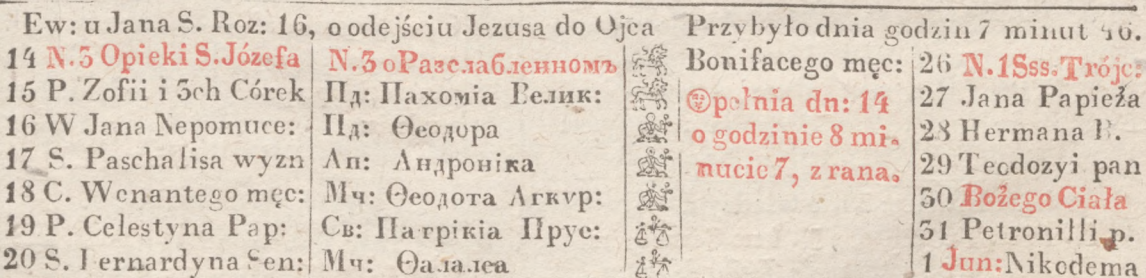 Ew: u Jana S. Roz: 16, o odejściu Jezusa do Ojca Przybyło dnia godzin 7 minut 46.
14 N. 3 Opieki S. Józefa N. 3 о Разслабленномъ Bonifacego męc: 26 N. 1 Sss. Trójc:
15 P. Zofii i 3ch Córek Пд: Пахоміа Велик: pełnia dn: 14 27 Jana Papieża
16 W Jana Nepomuce: Пд: Ѳеодора o godzinie 8 mi- 28 Hermana B.
17 S. Paschalisa wyzn Ап: Андроніка nucie 7, z rana. 29 Teodozyi pan
18 C. Wenantego męc: Мч: Ѳеодота Агкѵр: 30 Bożego Ciała
19 P. Celestyna Pap: Св: Патрікіа Прус: 31 Petronilli p.
20 S. Bernardyna Sen: Мч: Ѳалалеа 1 Jun: Nikodema